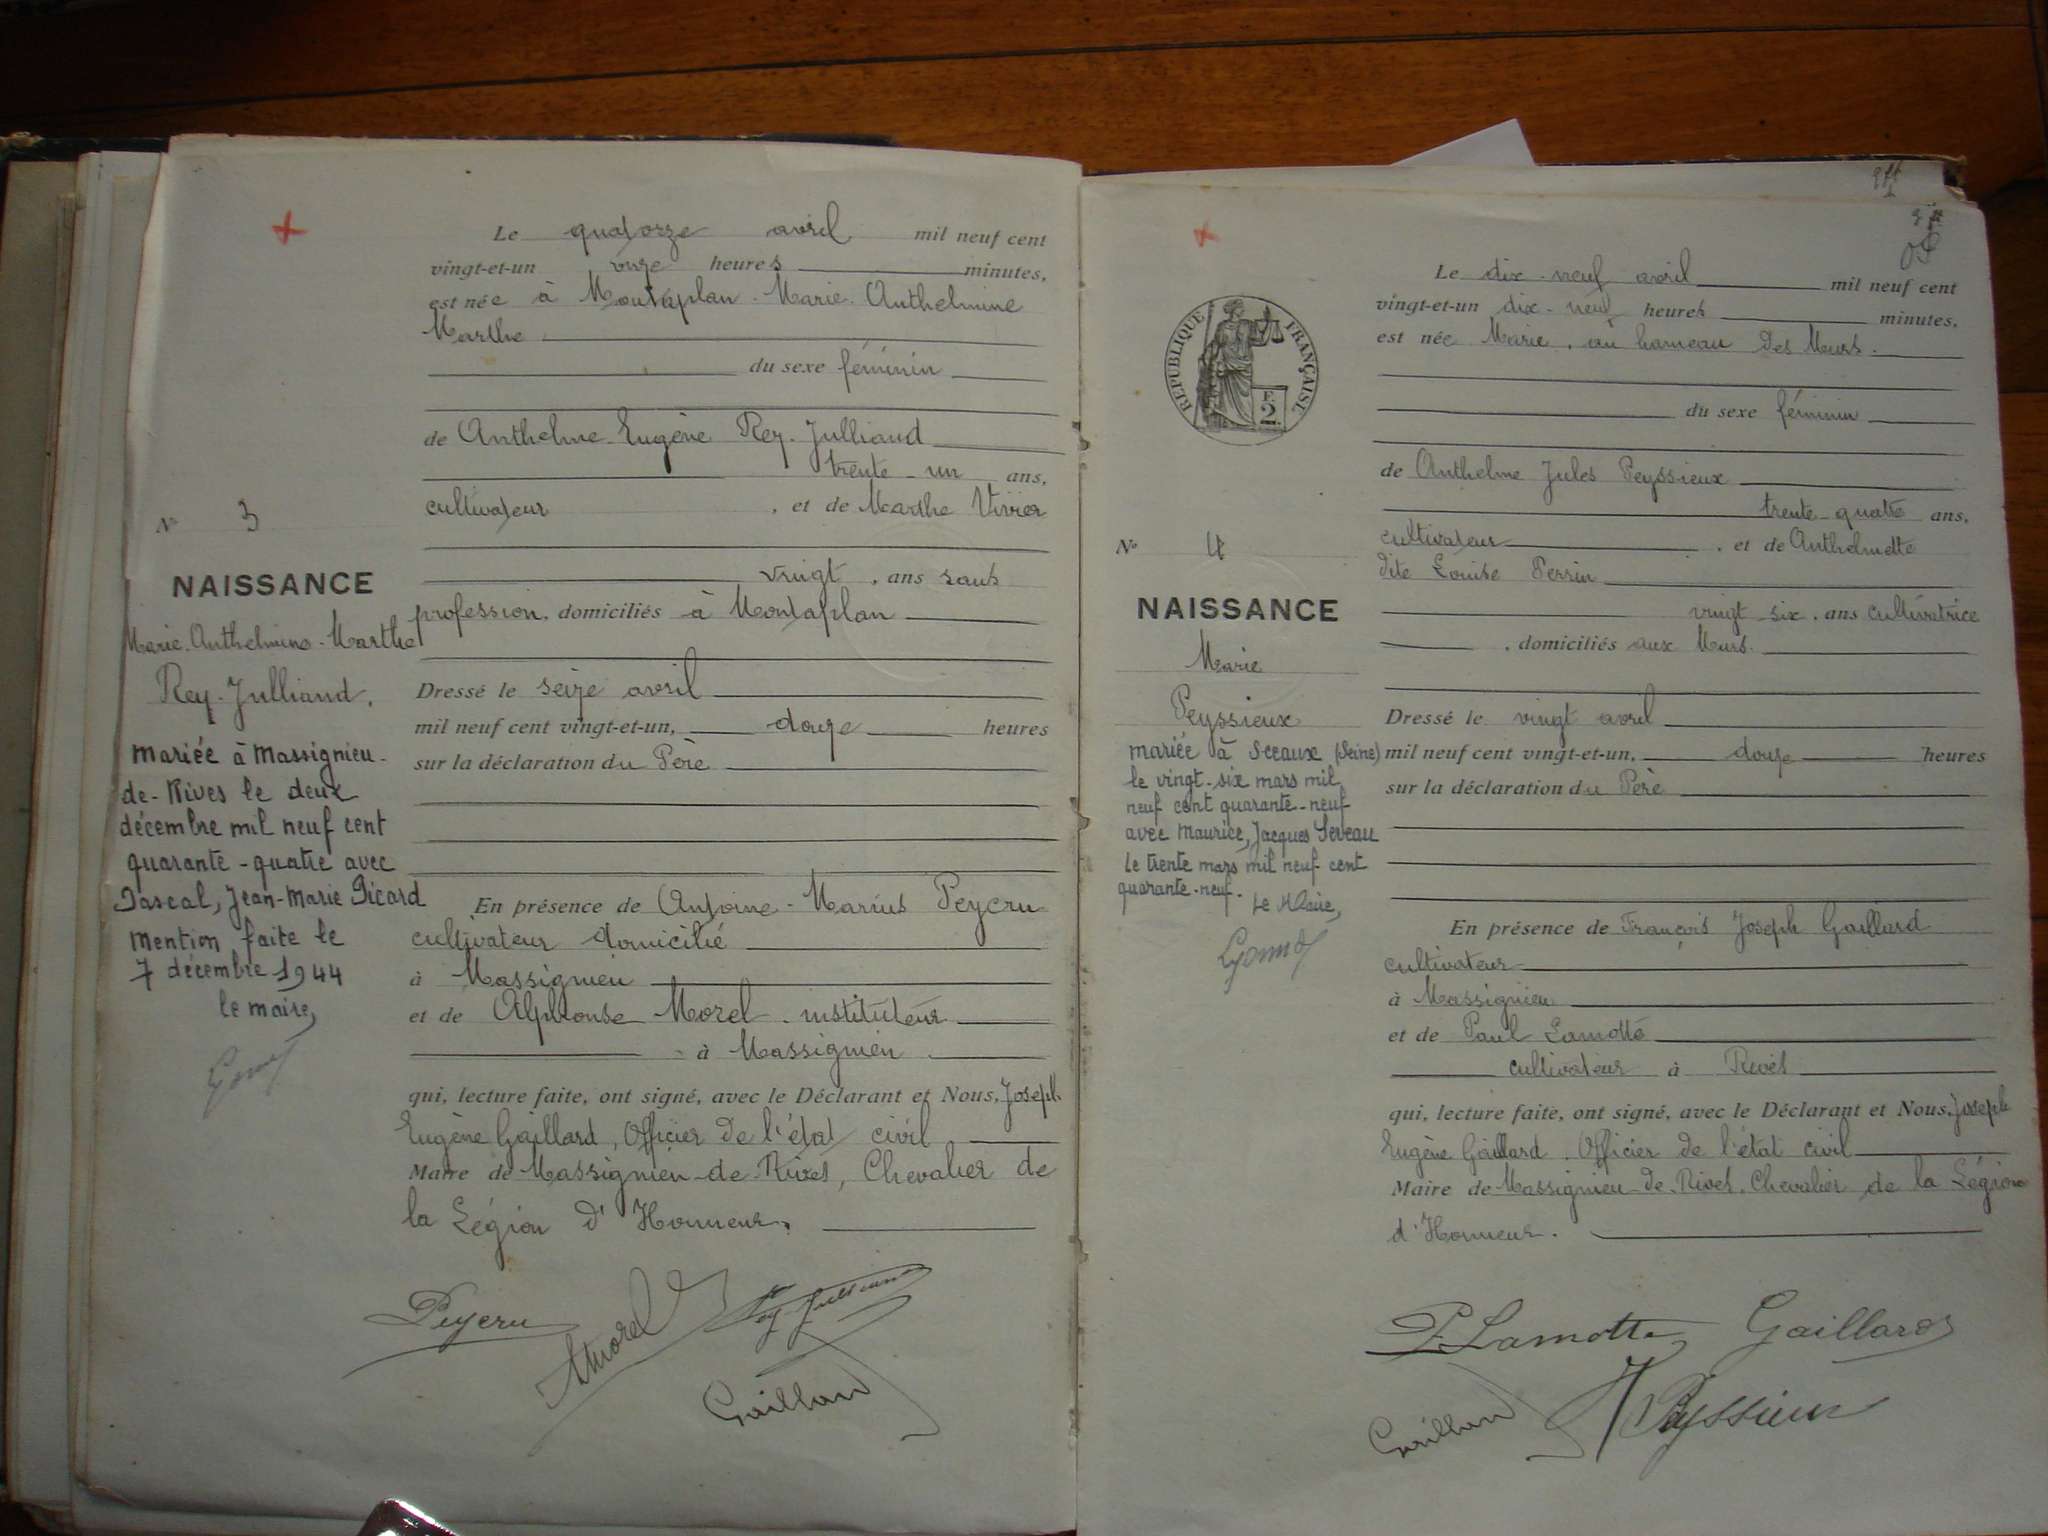 Le quatorze avril mil neuf cent
vingt-et-un onze heures minutes,
est née à Montaplan Marie Anthelmine
Marthe
du sexe féminin
de Anthelme Eugène Rey-Julliand
trente-un ans,
cultivateur, et de Marthe Vivier
vingt, ans sans
profession, domiciliés à Montaplan
Dressé le seize avril
mil neuf cent vingt-et-un, douze heures
sur la déclaration du Père
En présence de Antoine-Marius Peycru
cultivateur domicilié
à Massignieu
et de Alphonse Morel instituteur
à Massignieu
qui, lecture faite, ont signé, avec le Déclarant et Nous, Joseph
Eugène Gaillard, Officier de l'état civil
Maire de Massignieu-de-Rives, Chevalier de
la Légion d'Honneur.
Peycru
AMorel
Rey-Julliand
Gaillard
N° 3
NAISSANCE
Marie-Anthelmine-Marthe
Rey-Julliand.
mariée à Massignieu-
de-Rives le deux
décembre mil neuf cent
quarante-quatre avec
Pascal, Jean-Marie Picard
Mention faite le
7 décembre 1944
le maire,
REPUBLIQUE FRANÇAISE
F.
2
Le dix-neuf avril mil neuf cent
vingt-et-un dix-neuf heures minutes,
est née Marie, au hameau des Murs.
du sexe féminin
de Anthelme Jules Peyssieux
trente-quatre ans,
cultivateur, et de Anthelmette
dite Louise Perrin
vingt-six, ans cultivatrice
, domiciliés aux Murs.
Dressé le vingt avril
mil neuf cent vingt-et-un, douze heures
sur la déclaration du Père
En présence de François Joseph Gaillard
cultivateur
à Massignieu
et de Paul Lamotte
cultivateur à Rives
qui, lecture faite, ont signé, avec le Déclarant et Nous, Joseph
Eugène Gaillard, Officier de l'état civil
Maire de Massignieu-de-Rives, Chevalier de la Légion
d'Honneur.
P. Lamotte
Gaillard
Gaillard
Peyssieux
N° 4
NAISSANCE
Marie
Peyssieux
mariée à Sceaux (Seine)
le vingt-six mars mil
neuf cent quarante-neuf
avec Maurice, Jacques Serveau
le trente mars mil neuf cent
quarante-neuf.
Le Maire,